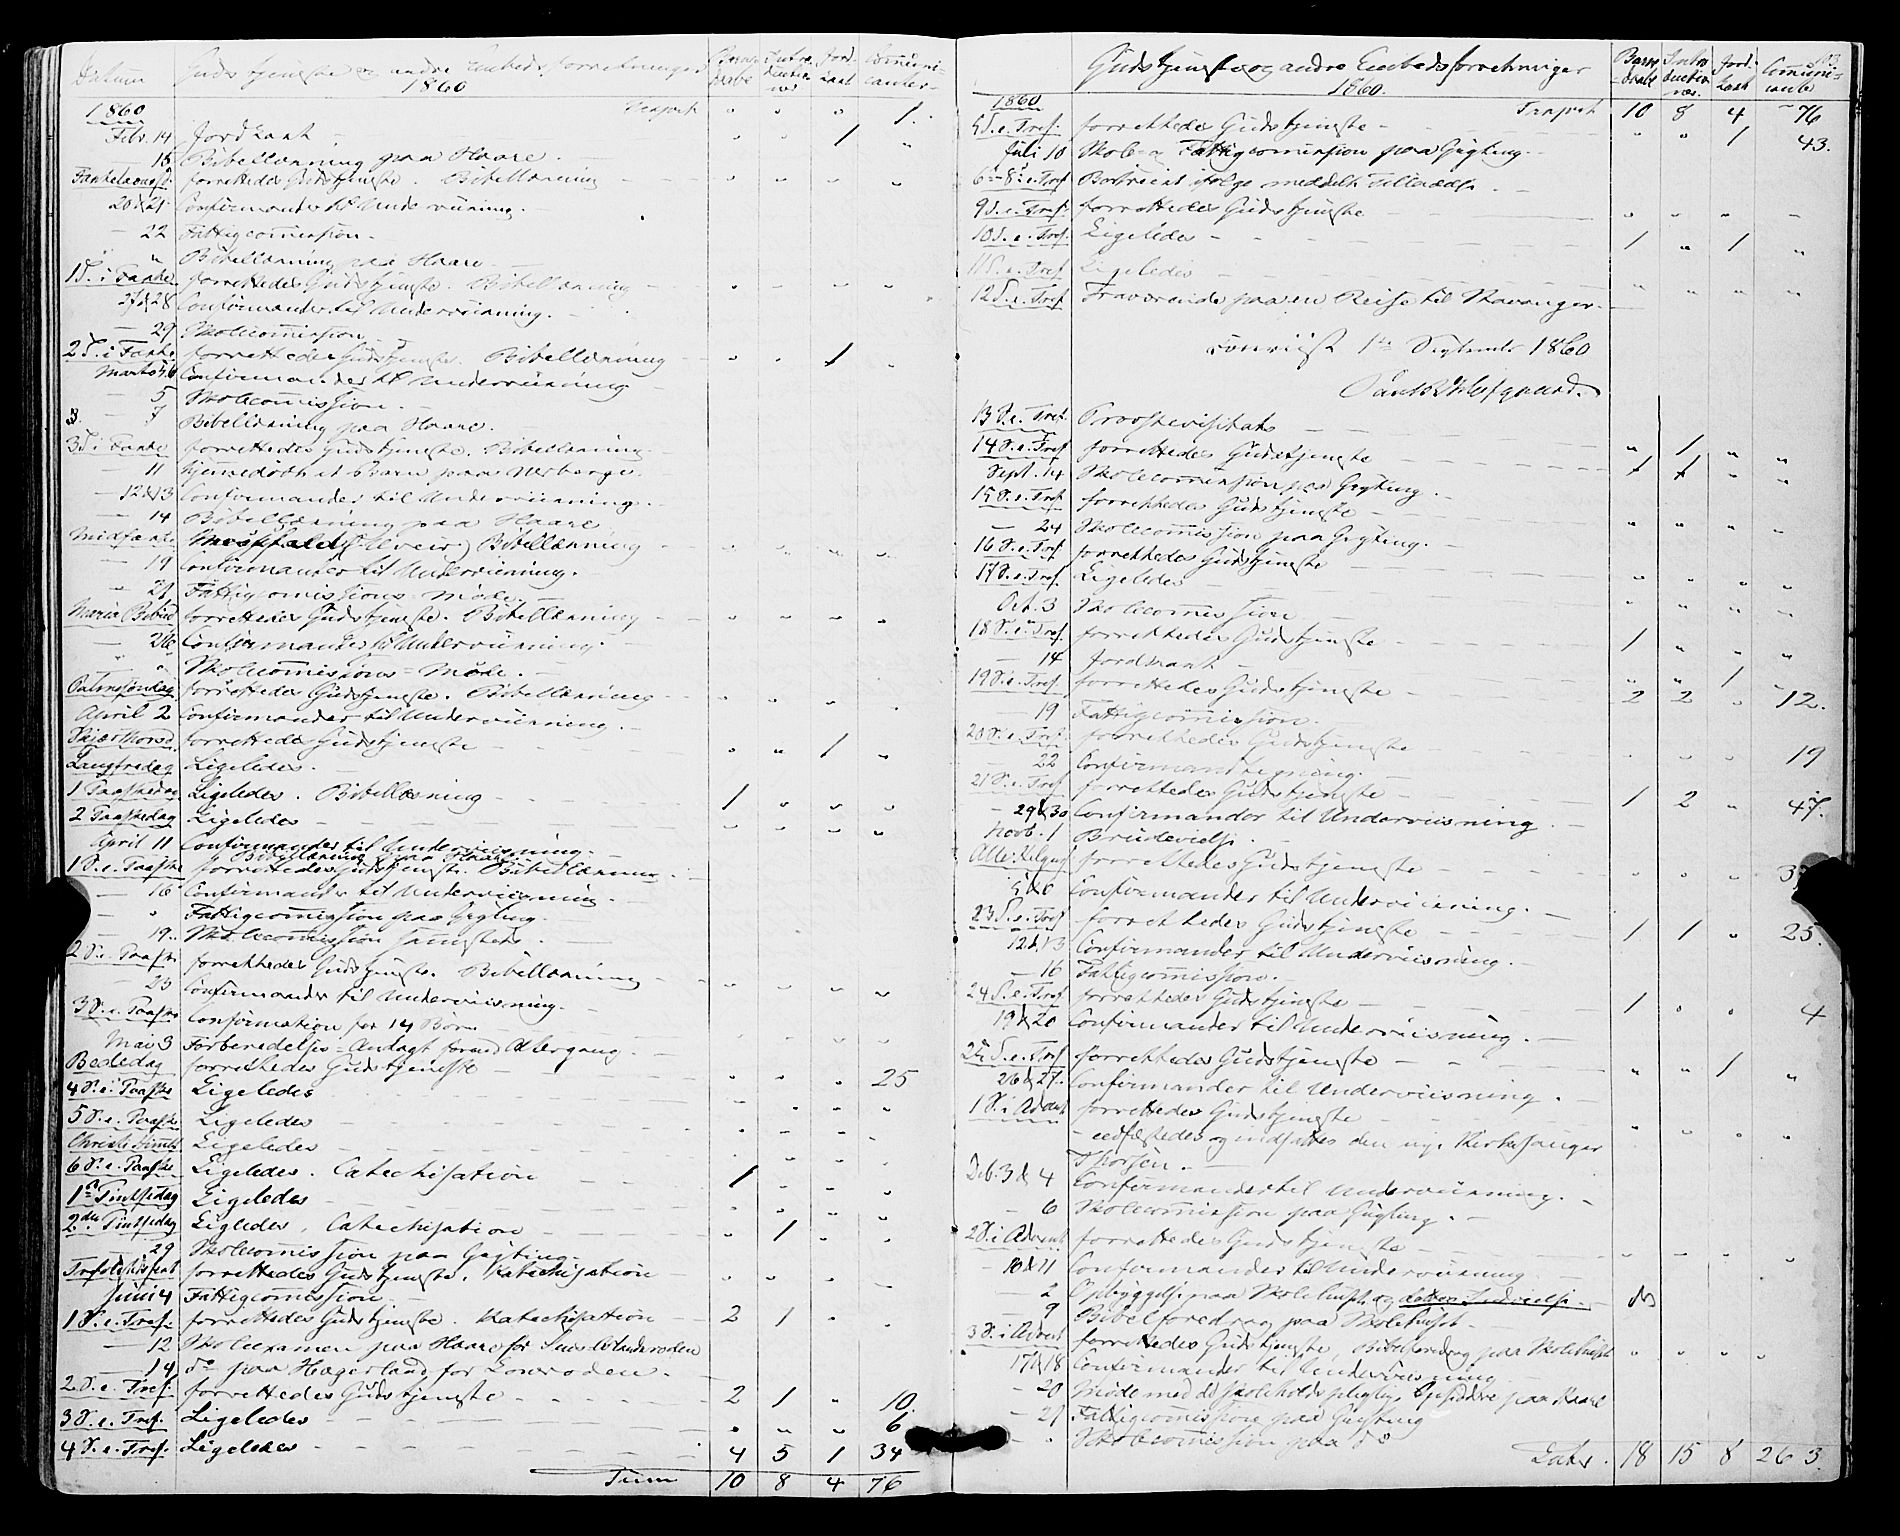 Datum Guds tjeneste og andre Embedsforretninger 1860 Barne daabe Intro ductio ner Jord- kast Communi- canter
1860 Trsport " " " 1.
Febr. 14 Jordkast - " " 1 "
— 15 Bibellæsning paa Haare.
Fastelavnss. forrettedes Gudstjeneste. Bibellæsning " " " "
20 & 21 Confirmander til Underviisning.
— 22 Fattigcommission.
" " Bibellæsning paa Haare
1 S. i Faste forrettedes Gudstjeneste. Bibellæsning " " " "
27 & 28 Confirmander til Underviisning.
— 29 Skolecommission
2 S. i Faste forrettedes Gudstjeneste. Bibellæsning " " 1 "
Marts 5.6 Confirmander til Underviisning
— 5 Skolecommission.
— 7 Bibellæsning paa Haare.
3 S i Faste forrettedes Gudstjeneste. Bibellæsning
— 11 hjemmedøbt et Barn paa
— 12 & 13 Confirmander til Underviisning.
— 14 Bibellæsning paa Haare
Midfaste Messefald (Uveir) Bibellæsning " " " "
— 19 Confirmander til Underviisning.
— 21 Fattigcommissions-Møde.
Mariæ Bebud forrettedes Gudstjeneste. Bibellæsning " " " "
— 26 Confirmander til Underviisning.
" " Skolecommissions-Møde.
Palmesøndag forrettedes Gudstjeneste. Bibellæsning " " " "
April 2 Confirmander til Underviisning.
Skjærthorsd. forrettedes Gudstjeneste " " 1 "
Langfredag Ligeledes.
1 Paaskedag Ligeledes. Bibellæsning 1 " " "
2 Paaskedag Ligeledes " " " "
April 11 Confirmander til Underviisning.
Bibellæsning paa Haare
1 S. e. Paaske forrettedes Gudstjeneste. Bibellæsning
— 16 Confirmander til Underviisning.
— " Fattigcommission paa Gygting.
— 19. Skolecommission sammesteds.
2 S. e. Paaske forrettedes Gudstjeneste. Bibellæsning " " " "
— 23 Confirmander til Underviisning.
3 S. e. Paaske Confirmation for 14 Børn
Mai 3 Forberedelses-Andagt forud Altergang.
Bededag forrettedes Gudstjeneste " " " 25
4 S. e. Paaske Ligeledes " " " "
5 S. e. Paaske Ligeledes " " " "
Christi Himlf. Ligeledes " " " "
6 S. e. Paaske Ligeledes. Catechisation 1 " " "
1ste Pintsedag Ligeledes " " " "
2den Pintsedag Ligeledes. Catechisation " 1 " "
— 29 Skolecommission paa Gygting.
Trefoldighedsfest forrettedes Gudstjeneste. Katechisation " " " "
Juni 4 Fattigcommission
1 S. e. Tref. forrettedes Gudstjeneste. Katechisation 2 1 " "
— 12 Skoleexamen paa Haare for
— 14 do paa Hægerland for
2. S. e. Tref. forrettedes Gudstjeneste 2 1 " 10.
3 S. e. Tref. Ligeledes " " " 6
4 S. e. Tref. Ligeledes 4 5 1 34
Sum 10 8 4 76
Gudstjeneste og andre Embedsforretninger 1860. Barne daabe Intro ductio ner. Jord- kast Communi- cante
1860 Trsport 10 8 4 76
5 S. e. Tref. forrettedes Gudstjeneste " " 1 43.
Juli 10 Skole- og Fattigcommission paa Gygting.
6te-8de S. e. Tref ifølge meddelt Tilladelse.
9 S. e. Tref. forrettedes Gudstjeneste " " " "
10 S. e. Tref. Ligeledes 1 " 1 "
11 S. e. Tref Ligeledes " " " "
12 S. e. Tref Fraværende paa en Reise til Stavanger.
1ste September 1860
13 S. e. Tref. Provstevisitats
14 S. e. Tref forrettedes Gudstjeneste " 1 " "
Sept. 14 Skolecommission paa Gygting. 1 1 " "
15 S. e. Tref forrettedes Gudstjeneste " " " "
— 24 Skolecommission paa Gygting.
16 S. e. Tref forrettedes Gudstjeneste
17 S. e. Tref. Ligeledes " " " "
Oct. 3 Skolecommission " " " "
18 S. e. Tref. forrettedes Gudstjeneste 1 " " "
— 14 Jordkast " " 1
19 S. e. Tref. forrettedes Gudstjeneste 2 2 " 12.
— 19 Fattigcommission.
20 S. e. Tref. forrettedes Gudstjeneste " " " 19
— 22 Confirmandtegning.
21 S. e. Tref forrettedes Gudstjeneste 1 2 " 47.
— 29 & 30 Confirmander til Underviisning
Novb. 1 Brudevielse.
Alle Helgens forrettedes Gudstjeneste " " "
5 & 6 Confirmander til Underviisning.
23 S. e. Tref forrettedes Gudstjeneste 1 1 " 25.
12 & 13 Confirmander til Underviisning.
— 16 Fattigcommission.
24 S. e. Tref forrettedes Gudstjeneste 1 " " 4
19 & 20 Confirmander til Underviisning.
25 S. e. Tref forrettedes Gudstjeneste " " 1 "
26 & 27. Confirmander til Underviisning.
1 S. i Advent forrettedes Gudstjeneste " " " "
- edfæstedes og indsattes den nye Kirkesanger
Thorsen.
Deb. 3 & 4 Confirmander til Underviisning.
— 6 Skolecommission paa Gygting.
2 S. i Advent forrettedes Gudstjeneste " " " "
— 10 & 11 Confirmander til Underviisning
— 2 Opbyggelse paa Skolehuset og
9 Bibelforedrag paa Skolehuset
3 S. i Advent forrettedes Gudstjeneste, Bibelforedrag paa Skolehuset " " " "
17 & 18 Confirmander til Underviisning
— 20 Møde med de skoleholdspligtige Opsiddere paa Haare
— 21 Fattigcommission paa Gygting
— " Skolecommission paa do
Latus 18 15 8 26 3.